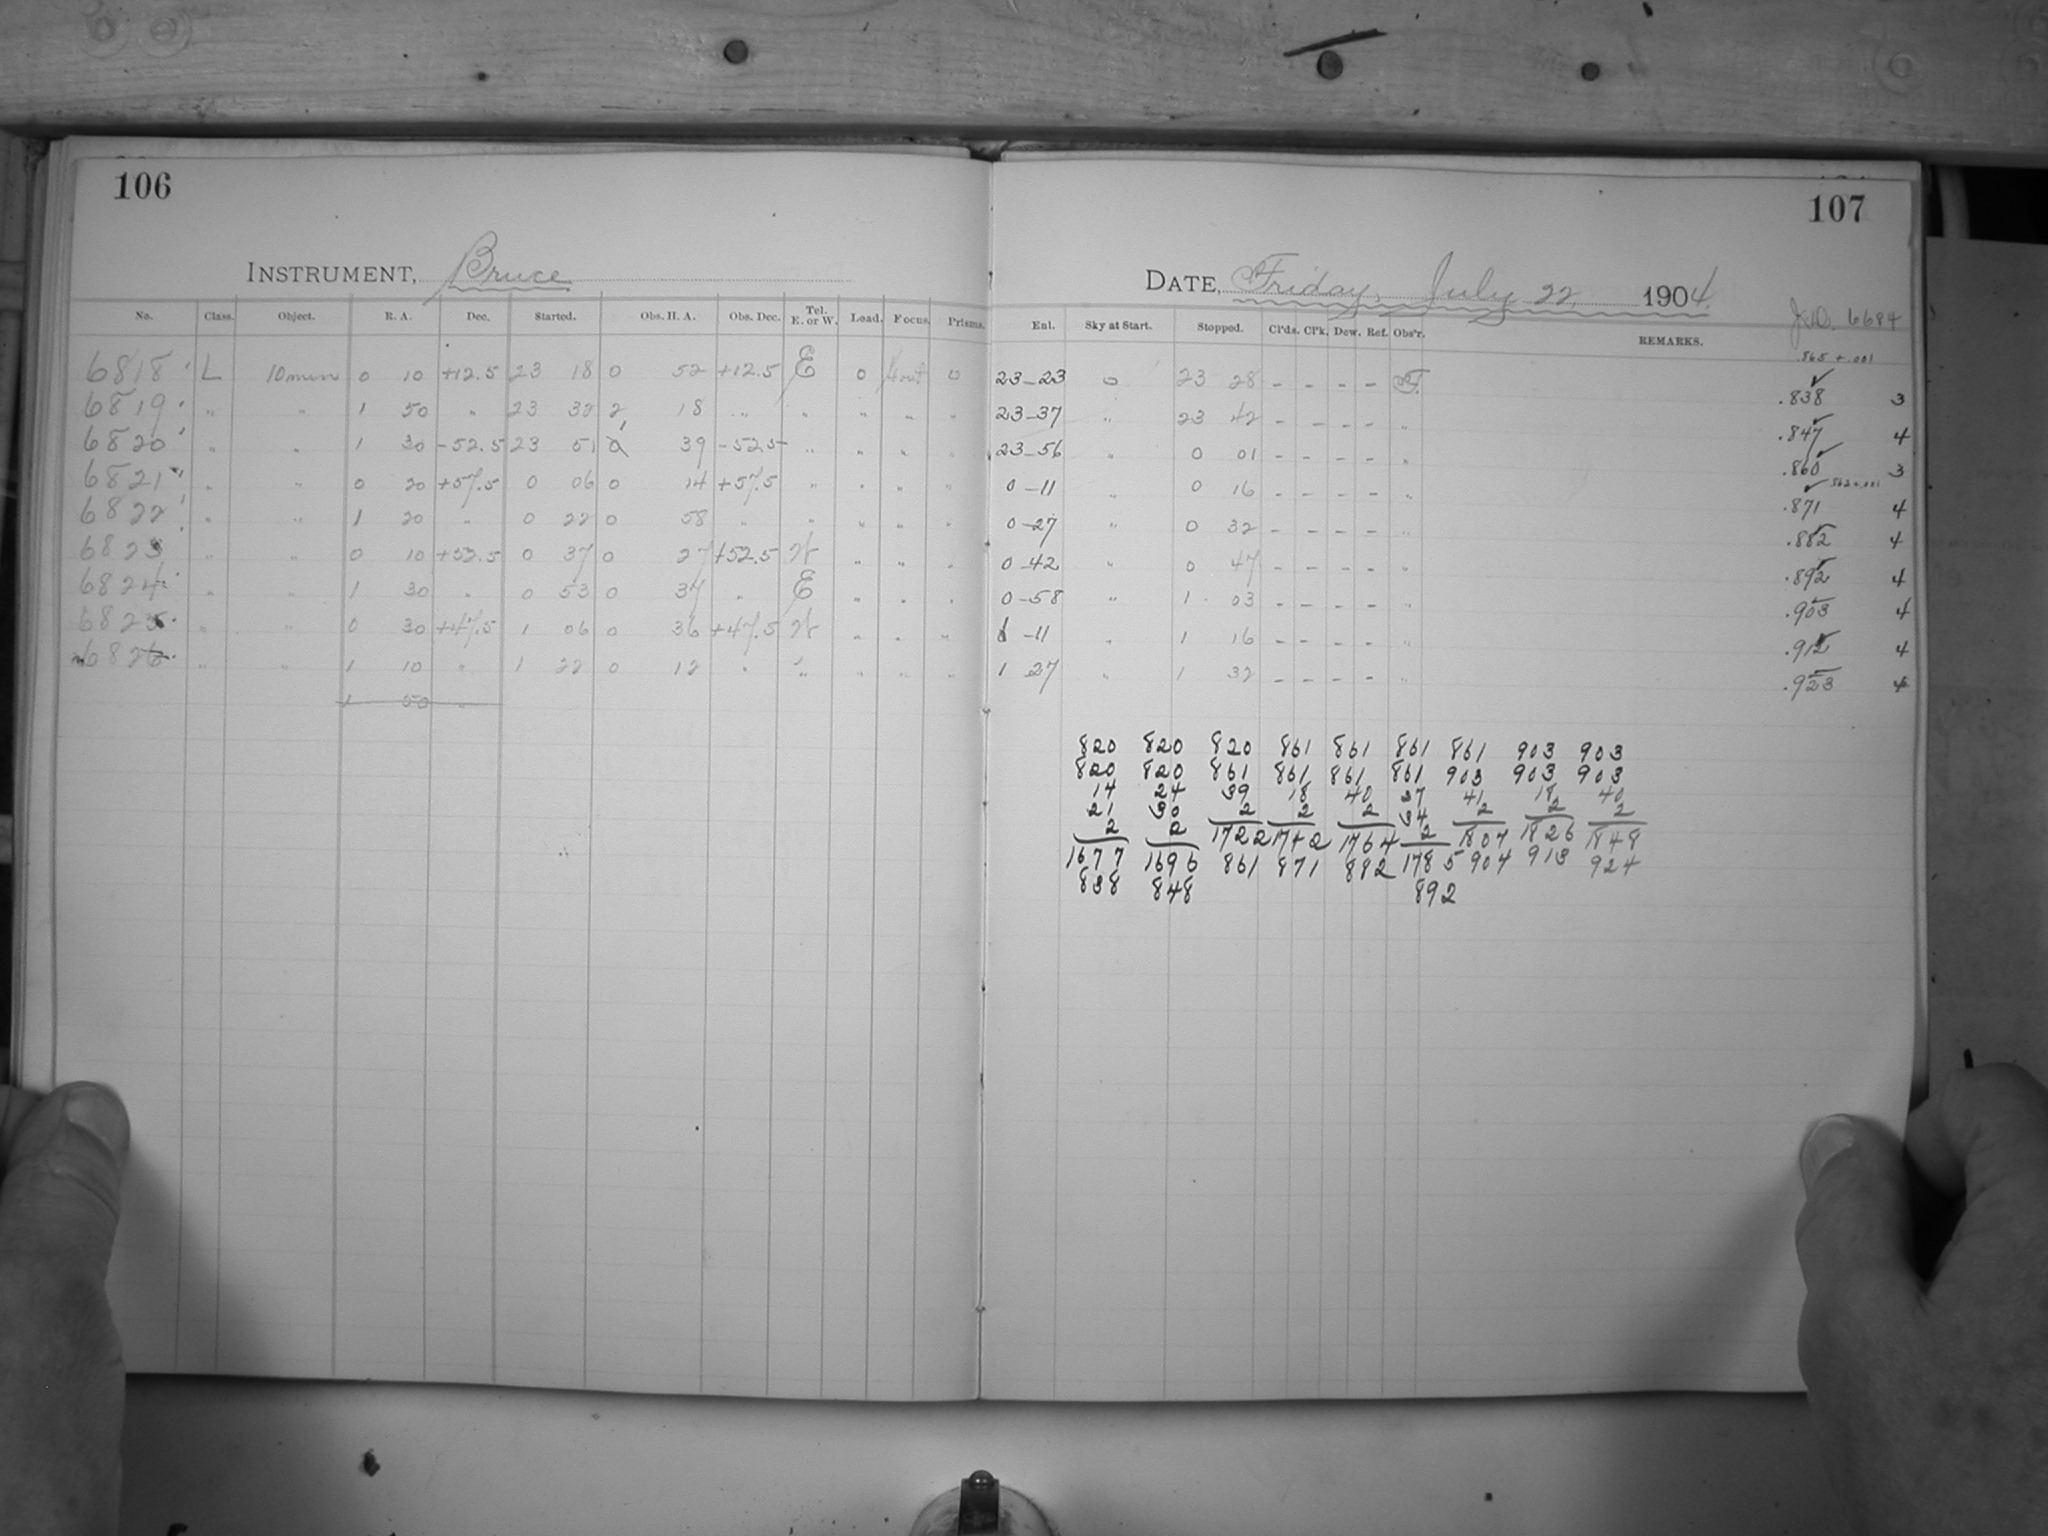 106
107
INSTRUMENT, Bruce
DATE, Friday, July 22, 1904.
J.D. 6684
No. Class. Object. R. A. Dec. Started. Obs. H. A. Obs. Dec. Tel. E. or W. Load. Focus. Prisms. Enl. Sky at Start. Stopped. Cl'ds. Cl'k. Dew. Ref. Obs'r. REMARKS.
.565 + .001
6818 L 10 min 0 10 +12.5 23 18 0 52 +12.5 E 0 0 23-23 0 23 28 - - - - .838 3
6819 " " 1 50 " 23 32 2 18 " " " " " 23-37 " 23 42 - - - - " .847 4
6820 " " 1 30 -52.5 23 51 1 39 -52.5 " " " " 23-56 " 0 01 - - - - " .860 3
6821 " " 0 20 +57.5 0 06 0 14 +57.5 " " " " 0-11 " 0 16 - - - - " .871 4
6822 " " 1 20 " 0 22 0 58 " " " " " 0-27 " 0 32 - - - - " .882 4
6823 " " 0 10 +52.5 0 37 0 27 +52.5 W " " " 0-42 " 0 47 - - - - " .892 4
6824 " " 1 30 " 0 53 0 37 " E " " " 0-58 " 1 03 - - - - " .903 4
6825 " " 0 30 +47.5 1 06 0 36 +47.5 W " " " 1-11 " 1 16 - - - - " .912 4
6826 " " 1 10 " 1 22 0 12 " " " " " 1 27 " 1 32 - - - - " .923 4
1 50 "
820 820 820 861 861 861 861 903 903
820 820 861 861 861 861 903 903 903
14 24 39 18 40 27 41 18 40
21 30 2 2 2 34 2 2 2
2 2 1722 1742 1764 2 1807 1826 1848
1677 1696 861 871 882 1785 904 913 924
838 848 892